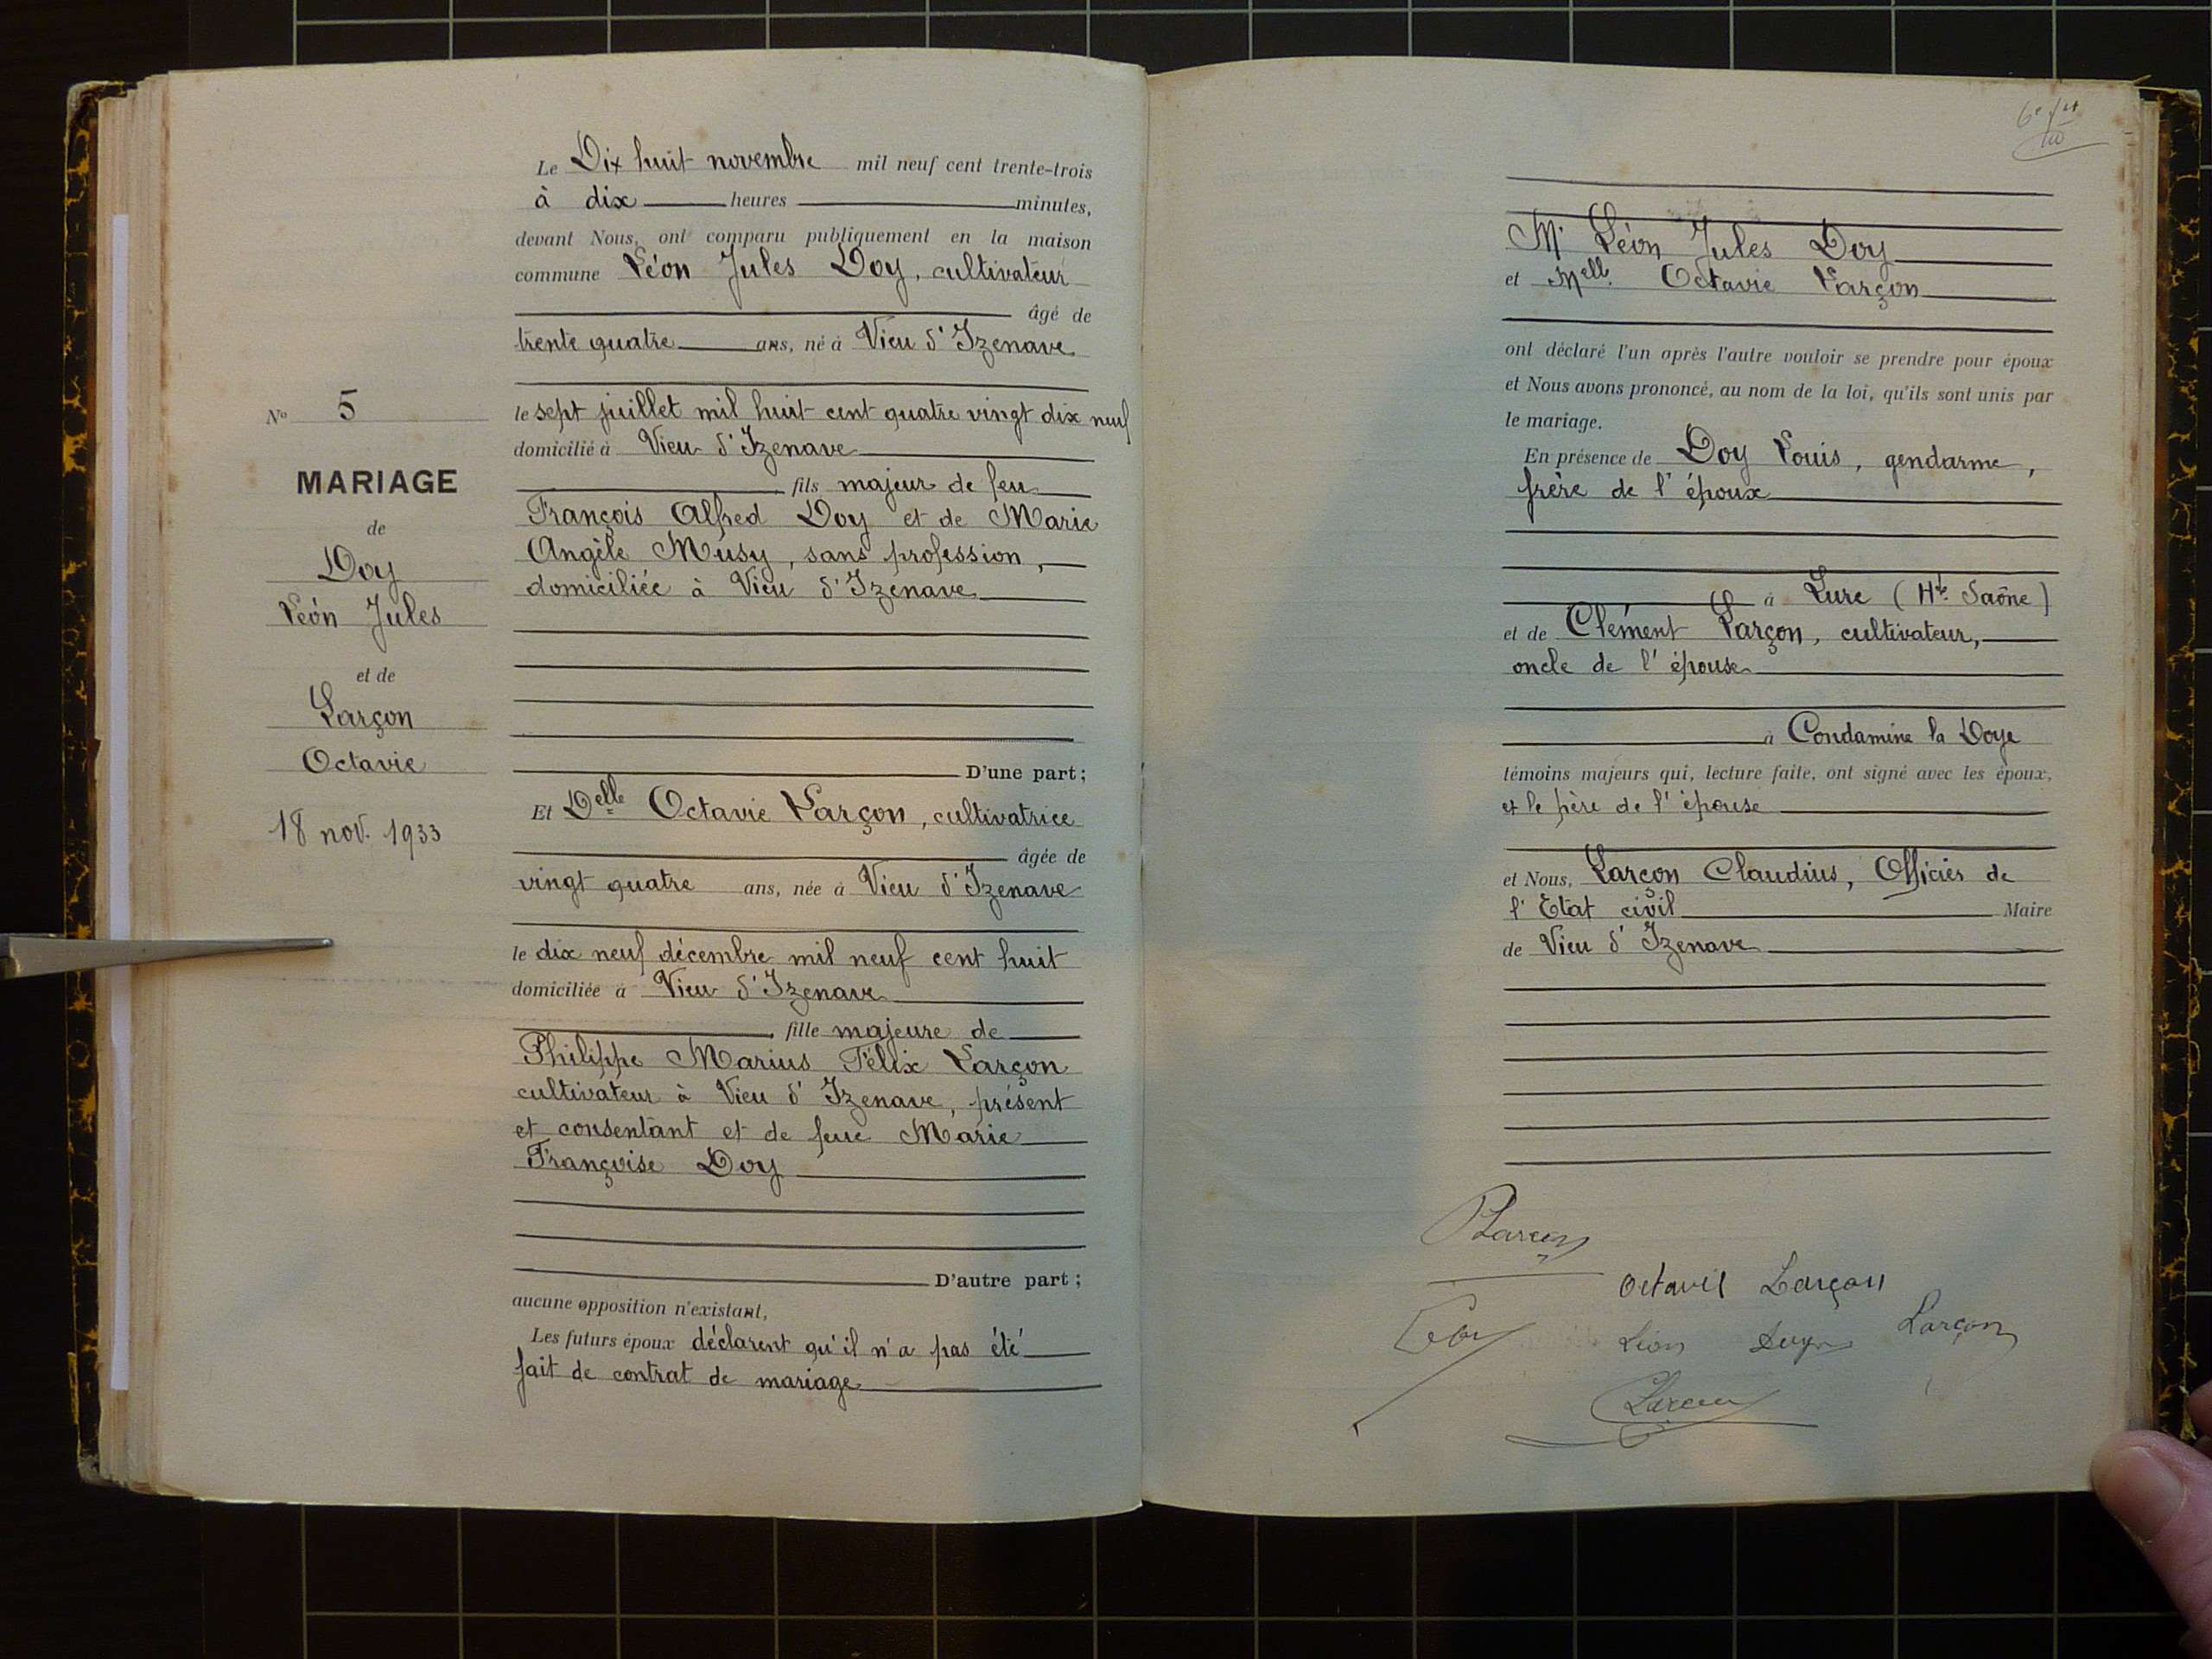 Le Dix huit novembre mil neuf cent trente-trois
à dix heures minutes,
devant Nous, ont comparu publiquement en la maison
commune Léon Jules Doy, cultivateur
âgé de
trente quatre ans, né à Vieu d'Izenave
le sept juillet mil huit cent quatre vingt dix neuf
domicilié à Vieu d'Izenave
fils majeur de feu
François Alfred Doy et de Marie
Angèle Musy, sans profession,
domiciliée à Vieu d'Izenave
D'une part;
Et Delle Octavie Larçon, cultivatrice
âgée de
vingt quatre ans, née à Vieu d'Izenave
le dix neuf décembre mil neuf cent huit
domiciliée à Vieu d'Izenave
fille majeure de
Philippe Marius Félix Larçon
cultivateur à Vieu d'Izenave, présent
et consentant et de feue Marie
Françoise Doy
D'autre part;
aucune opposition n'existant,
Les futurs époux déclarent qu'il n'a pas été
fait de contrat de mariage
No 5
MARIAGE
de
Doy
Léon Jules
et de
Larçon
Octavie
18 nov. 1933
Mr Léon Jules Doy
et Melle Octavie Larçon
ont déclaré l'un après l'autre vouloir se prendre pour époux
et Nous avons prononcé, au nom de la loi, qu'ils sont unis par
le mariage.
En présence de Doy Louis, gendarme,
frère de l'époux
à Lure (Hte Saône)
et de Clément Larçon, cultivateur,
oncle de l'épouse
à Condamine la Doye
témoins majeurs qui, lecture faite, ont signé avec les époux,
et le père de l'épouse
et Nous, Larçon Claudius, Officier de
l'Etat civil Maire
de Vieu d'Izenave
Larçon
Octavie Larçon
Larçon
Léon Doy
Larçon